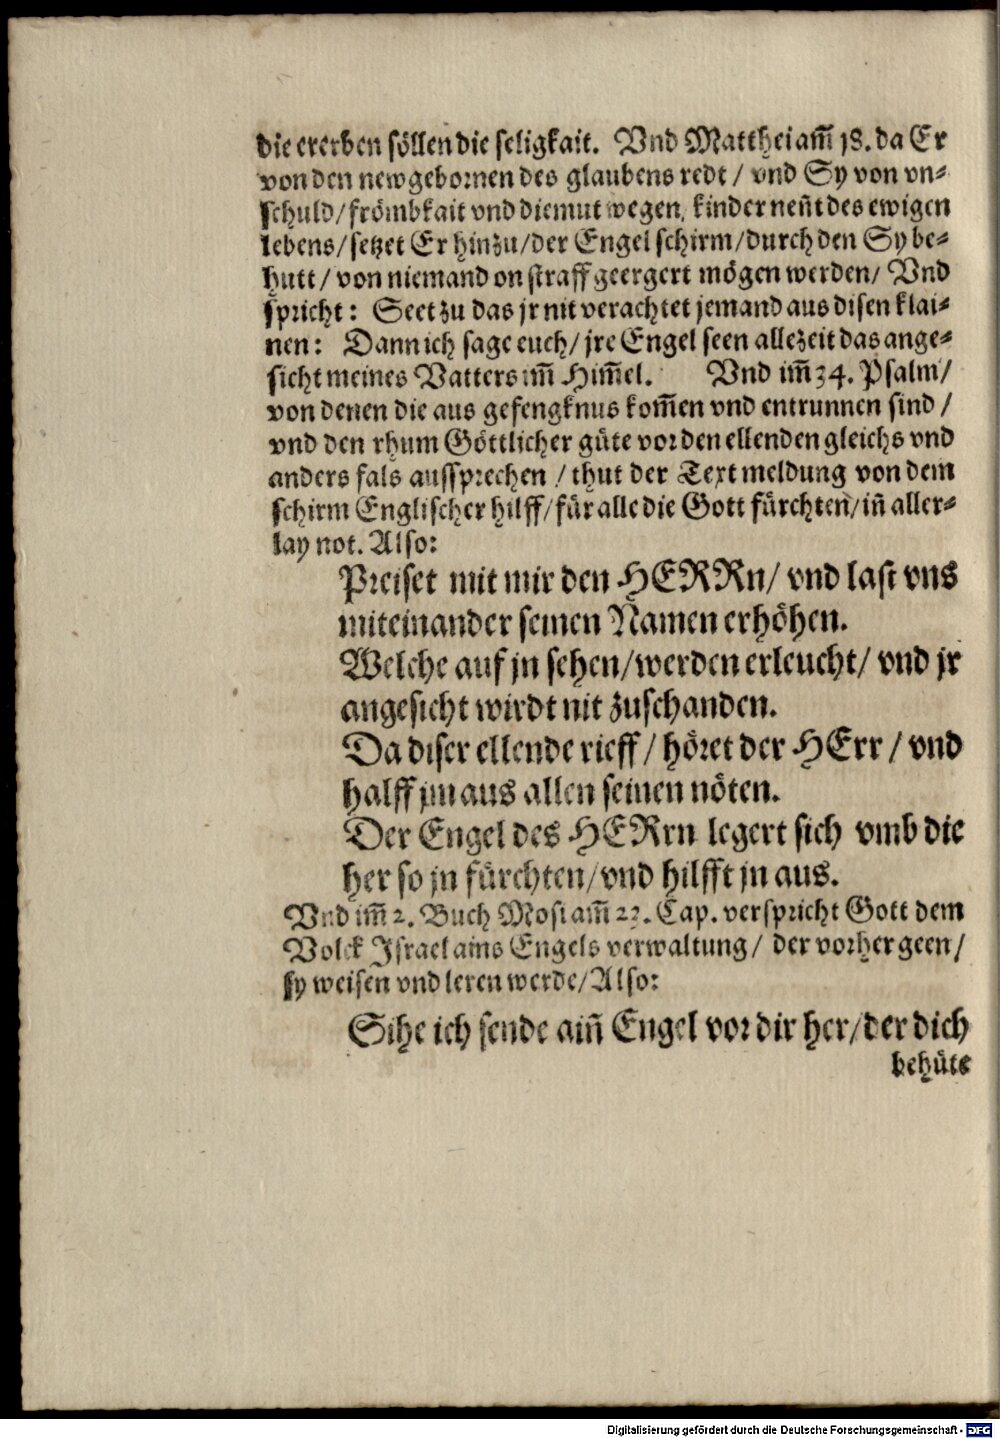 die ererben söllen die seligkait. Vnd Matthei am̃ 18. da Er
von den newgebornen des glaubens redt / vnd Sy von vn⸗
schuld/ frömbkait vnd diemut wegen, kinder neñt des ewigen
lebens/ setzet Er hinzu/ der Engel schirm/ durch den Sy be⸗
hutt / von niemand on straff geergert mögen werden/ Vnd
spricht: Seet zu das jr nit verachtet jemand aus disen klai⸗
nen: Dann ich sage euch/ jre Engel seen allezeit das ange⸗
sicht meines Vatters im̃ Him̃el. Vnd im̃ 34. Psalm/
von denen die aus gefengknus kom̃en vnd entrunnen sind /
vnd den rhum Göttlicher güte vor den ellenden gleichs vnd
anders fals aussprechen / thut der Text meldung von dem
schirm Englischer hilff/ für alle die Gott fürchten/ iñ aller⸗
lay not. Also:
Preiset mit mir den HERRn/ vnd last vns
miteinander seinen Namen erhöhen.
Welche auf jn sehen/ werden erleucht/ vnd jr
angesicht wirdt nit zuschanden.
Da diser ellende rieff / höret der HErr / vnd
halff jm aus allen seinen nöten.
Der Engel des HERrn legert sich vmb die
her so jn fürchten/ vnd hilfft jn aus.
Vnd im̃ 2. Buch Mosi am̃ 23. Cap. verspricht Gott dem
Volck Israel ains Engels verwaltung/ der vorher geen/
sy weisen vnd leren werde/ Also:
Sihe ich sende aiñ Engel vor dir her/ der dich
behüte
Digitalisierung gefördert durch die Deutsche Forschungsgemeinschaft - DFG